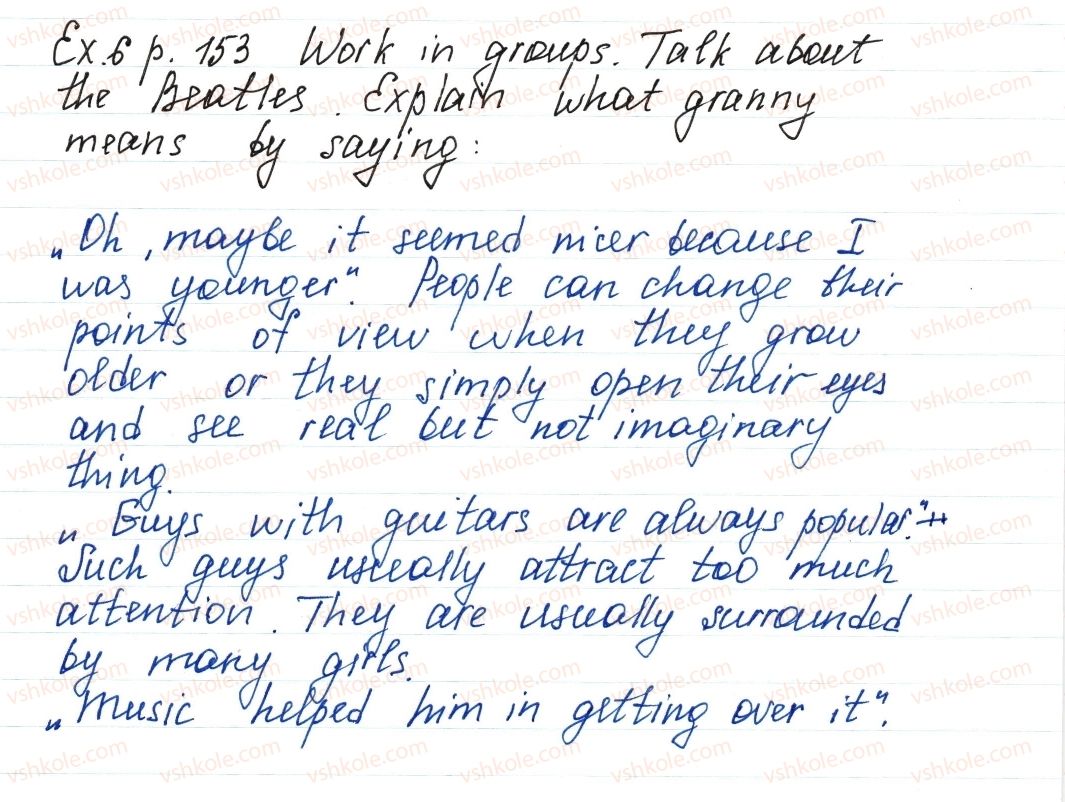 Ex.6 p. 153 Work in groups. Talk about
the Beatles. Explain what granny
means by saying:
„Oh, maybe it seemed nicer because I
was younger“. People can change their
points of view when they grow
older or they simply open their eyes
and see real but not imaginary
thing.
„Guys with guitars are always popular“.
Such guys usually attract too much
attention. They are usually surrounded
by many girls.
„Music helped him in getting over it“.